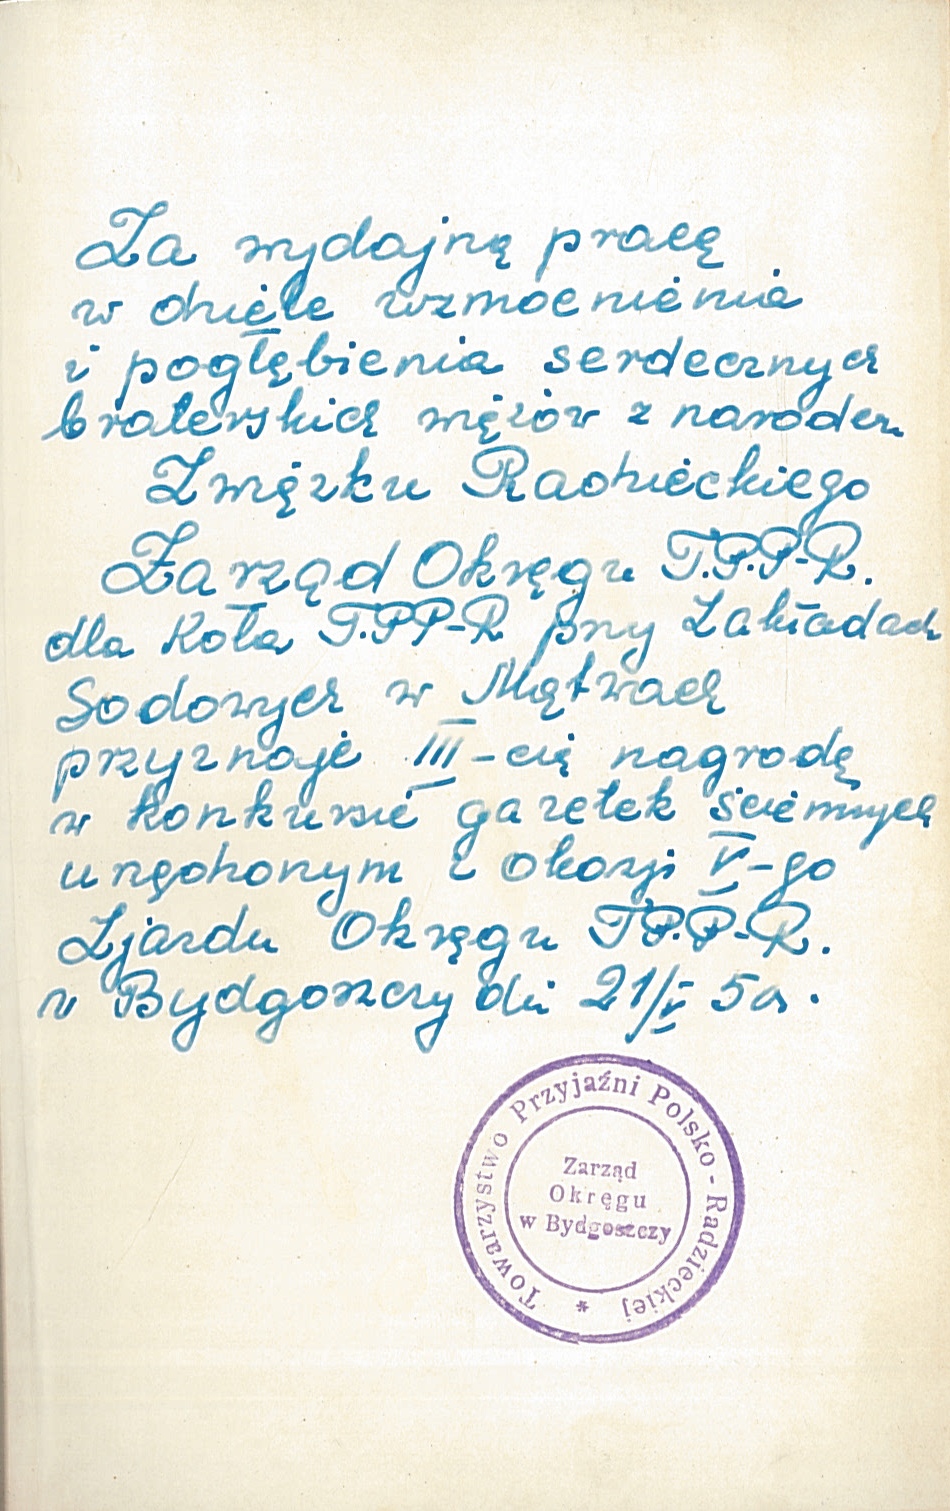 Za wydajną pracę
w dziele wzmocnienia
i pogłębienia serdecznych
braterskich więzów z narodem
Związku Radzieckiego
Zarząd Okręgu T.P.P-R.
dla Koła T.PP-R. przy Zakładach
Sodowych w Mątwach
przyznaje III-cią nagrodę
w konkursie gazetek ściennych
urządzonym z okazji V-go
Zjazdu Okręgu TP.P-R.
w Bydgoszczy dn. 21/V
Towarzystwo Przyjaźni Polsko - Radzieckiej *
Zarząd
Okręgu
w Bydgoszczy